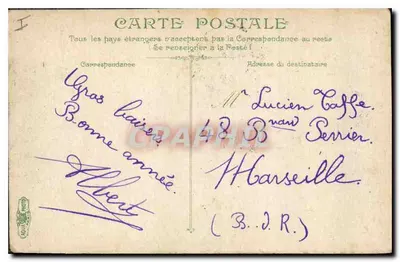 I
CARTE POSTALE
Tous les pays étrangers n'acceptent pas la Correspondance au recto
(Se renseigner à la Poste)
Correspondance
Adresse du destinataire
Gros baisers
Bonne année.
Albert
Mr Lucien Taffe
48 Bard Perrier
Marseille.
(B. d. R.)